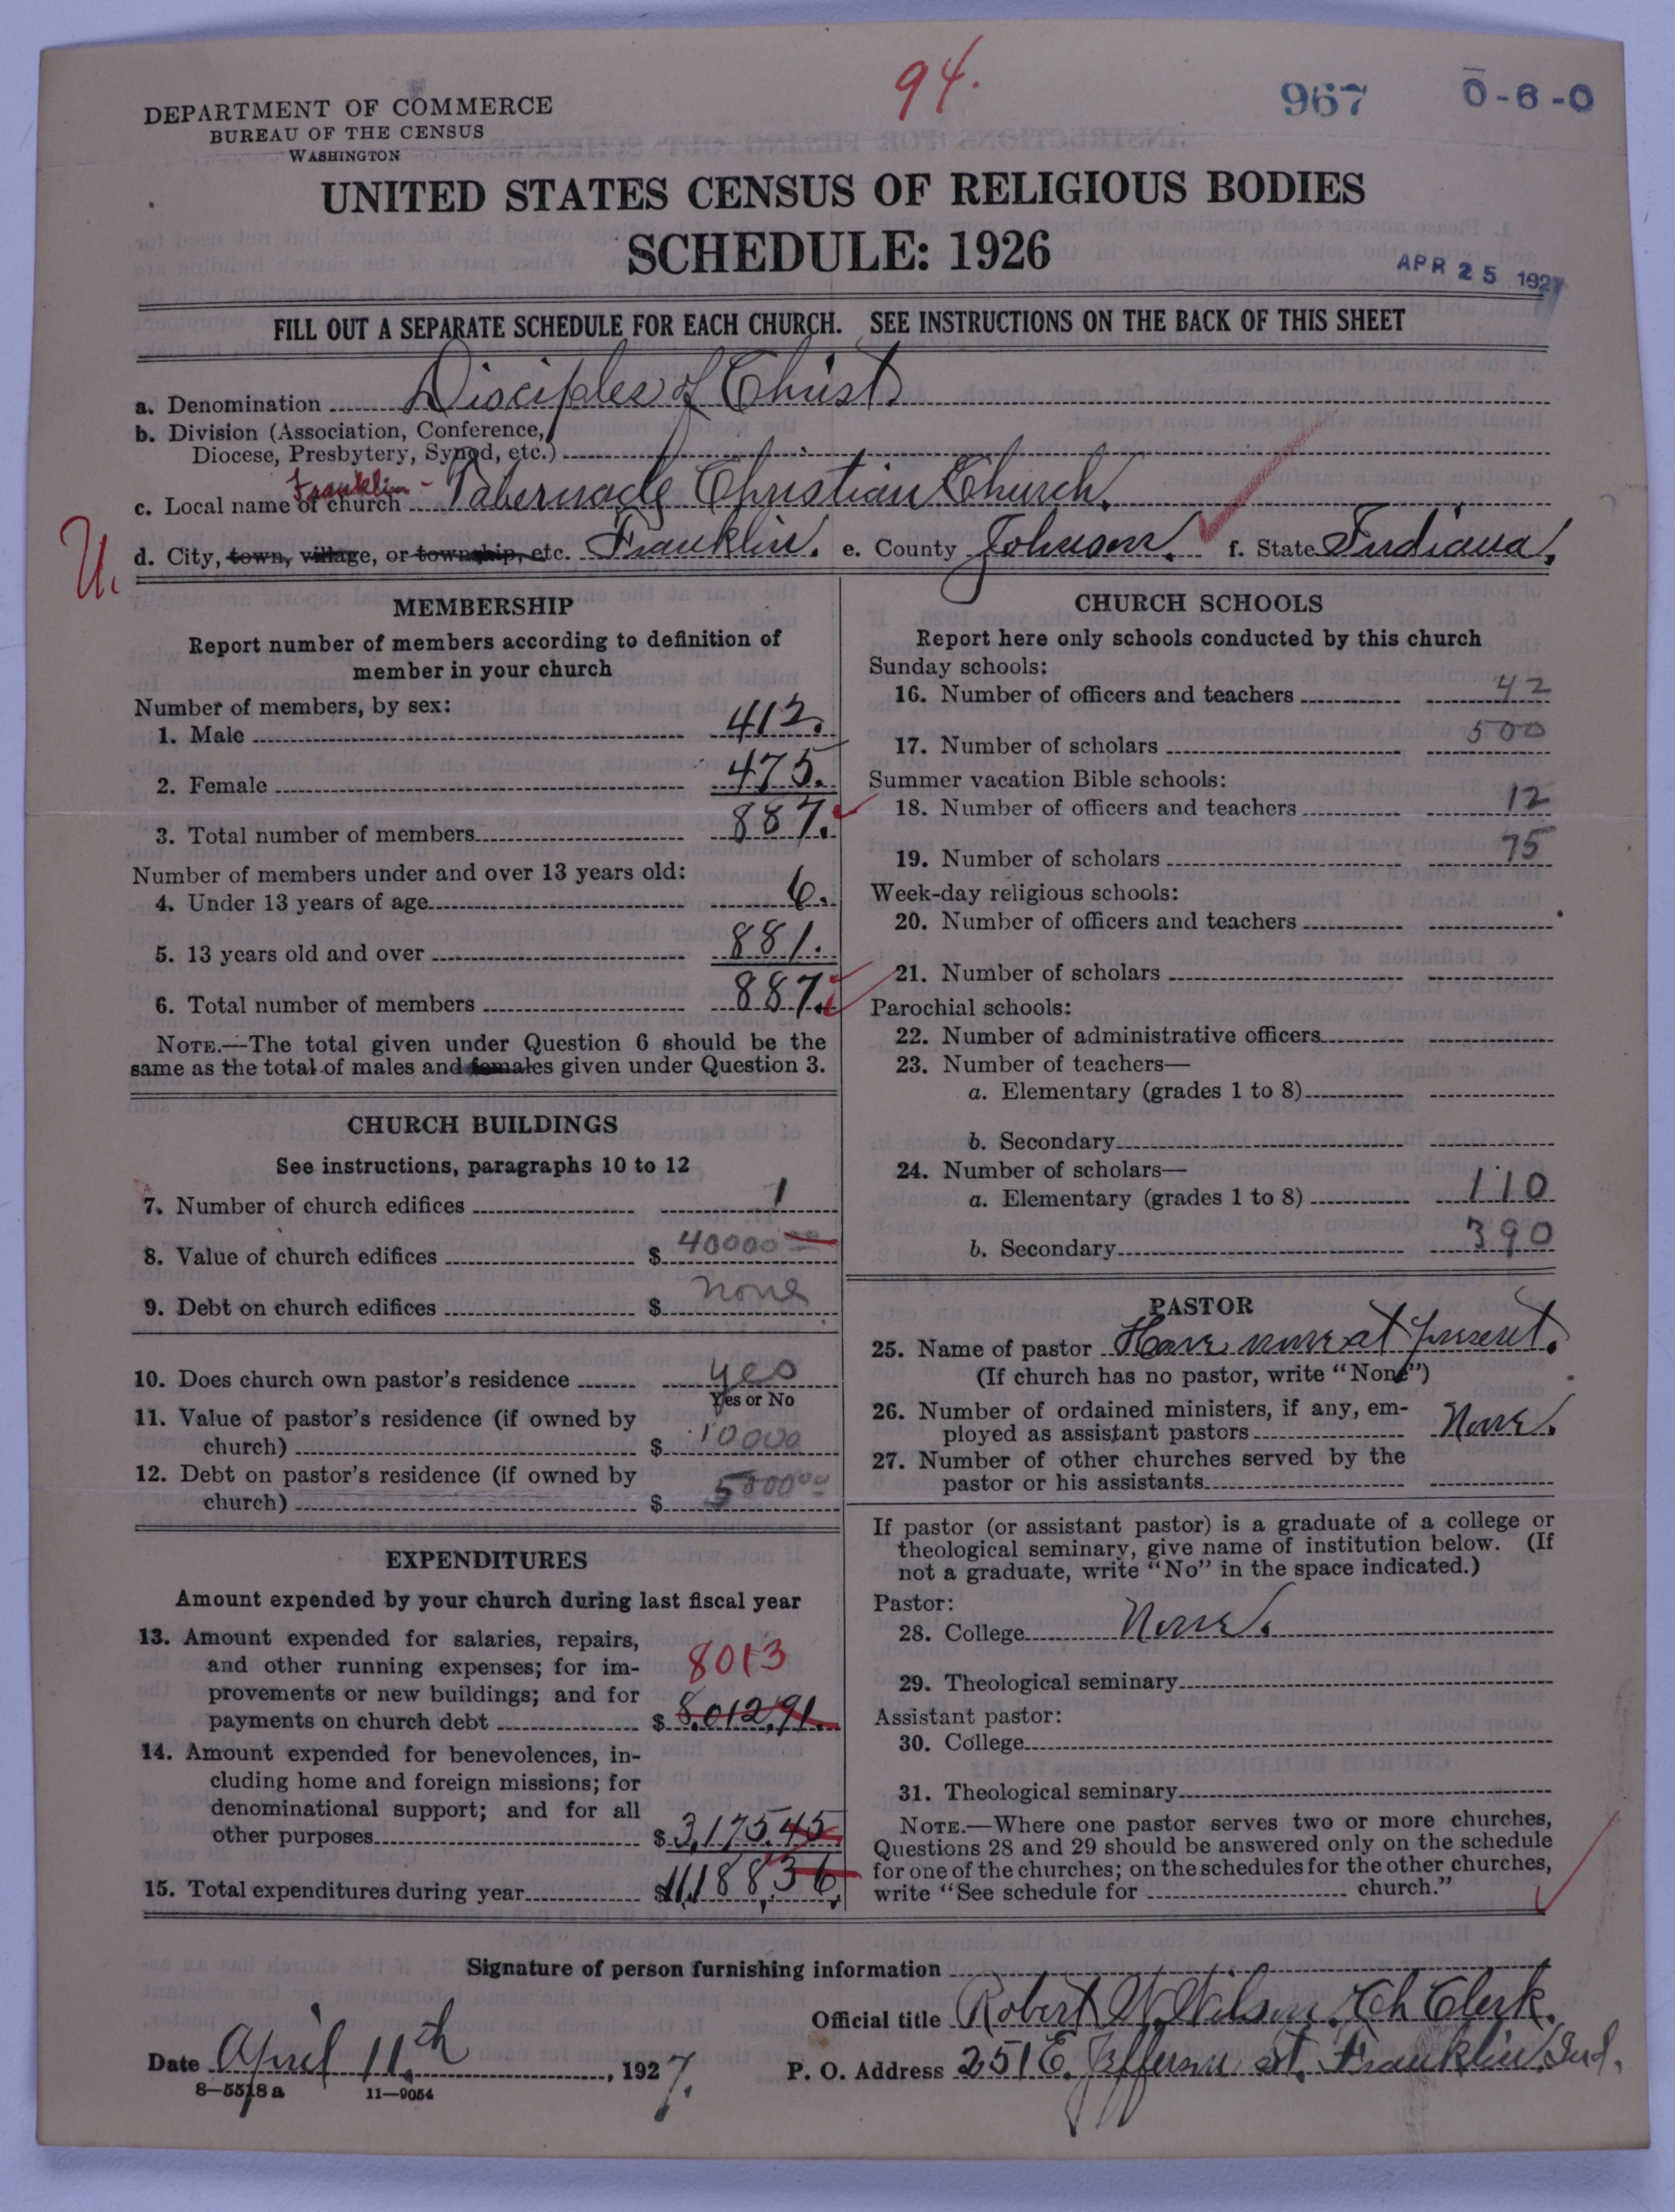 94.
967
0-6-0
DEPARTMENT OF COMMERCE
BUREAU OF THE CENSUS
WASHINGTON
UNITED STATES CENSUS OF RELIGIOUS BODIES
SCHEDULE: 1926
APR 25 1927
FILL OUT A SEPARATE SCHEDULE FOR EACH CHURCH. SEE INSTRUCTIONS ON THE BACK OF THIS SHEET
a. Denomination Disciples of Christ.
b. Division (Association, Conference,
Diocese, Presbytery, Synod, etc.)
c. Local name of church Franklin - Tabernacle Christian Church.
U.
d. City, town, village, or township, etc. Franklin. e. County Johnson. f. State Indiana.
MEMBERSHIP
Report number of members according to definition of
member in your church
Number of members, by sex:
1. Male 412.
2. Female 475.
3. Total number of members 887.
Number of members under and over 13 years old:
4. Under 13 years of age 6.
5. 13 years old and over 881.
6. Total number of members 887.
NOTE.—The total given under Question 6 should be the
same as the total of males and females given under Question 3.
CHURCH BUILDINGS
See instructions, paragraphs 10 to 12
7. Number of church edifices 1
8. Value of church edifices $ 40000 00
9. Debt on church edifices $ none
10. Does church own pastor's residence yes
Yes or No
11. Value of pastor's residence (if owned by
church) $ 10000
12. Debt on pastor's residence (if owned by
church) $ 5800 00
EXPENDITURES
Amount expended by your church during last fiscal year
13. Amount expended for salaries, repairs,
and other running expenses; for im-
provements or new buildings; and for
payments on church debt $ 8,012,91.
8013
14. Amount expended for benevolences, in-
cluding home and foreign missions; for
denominational support; and for all
other purposes $ 3,175.45
15. Total expenditures during year $ 11,188,36.
CHURCH SCHOOLS
Report here only schools conducted by this church
Sunday schools:
16. Number of officers and teachers 42
17. Number of scholars 500
Summer vacation Bible schools:
18. Number of officers and teachers 12
19. Number of scholars 75
Week-day religious schools:
20. Number of officers and teachers
21. Number of scholars
Parochial schools:
22. Number of administrative officers
23. Number of teachers—
a. Elementary (grades 1 to 8)
b. Secondary
24. Number of scholars—
a. Elementary (grades 1 to 8) 110
b. Secondary 390
PASTOR
25. Name of pastor Have none at present.
(If church has no pastor, write "None")
26. Number of ordained ministers, if any, em-
ployed as assistant pastors None.
27. Number of other churches served by the
pastor or his assistants
If pastor (or assistant pastor) is a graduate of a college or
theological seminary, give name of institution below. (If
not a graduate, write "No" in the space indicated.)
Pastor:
28. College None.
29. Theological seminary
Assistant pastor:
30. College
31. Theological seminary
NOTE.—Where one pastor serves two or more churches,
Questions 28 and 29 should be answered only on the schedule
for one of the churches; on the schedules for the other churches,
write "See schedule for church."
Signature of person furnishing information
Official title Robert W. Wilson. Ch Clerk.
Date April 11.th, 1927.
P. O. Address 251 E. Jefferson St. Franklin. Ind.
8-5518a 11-9054